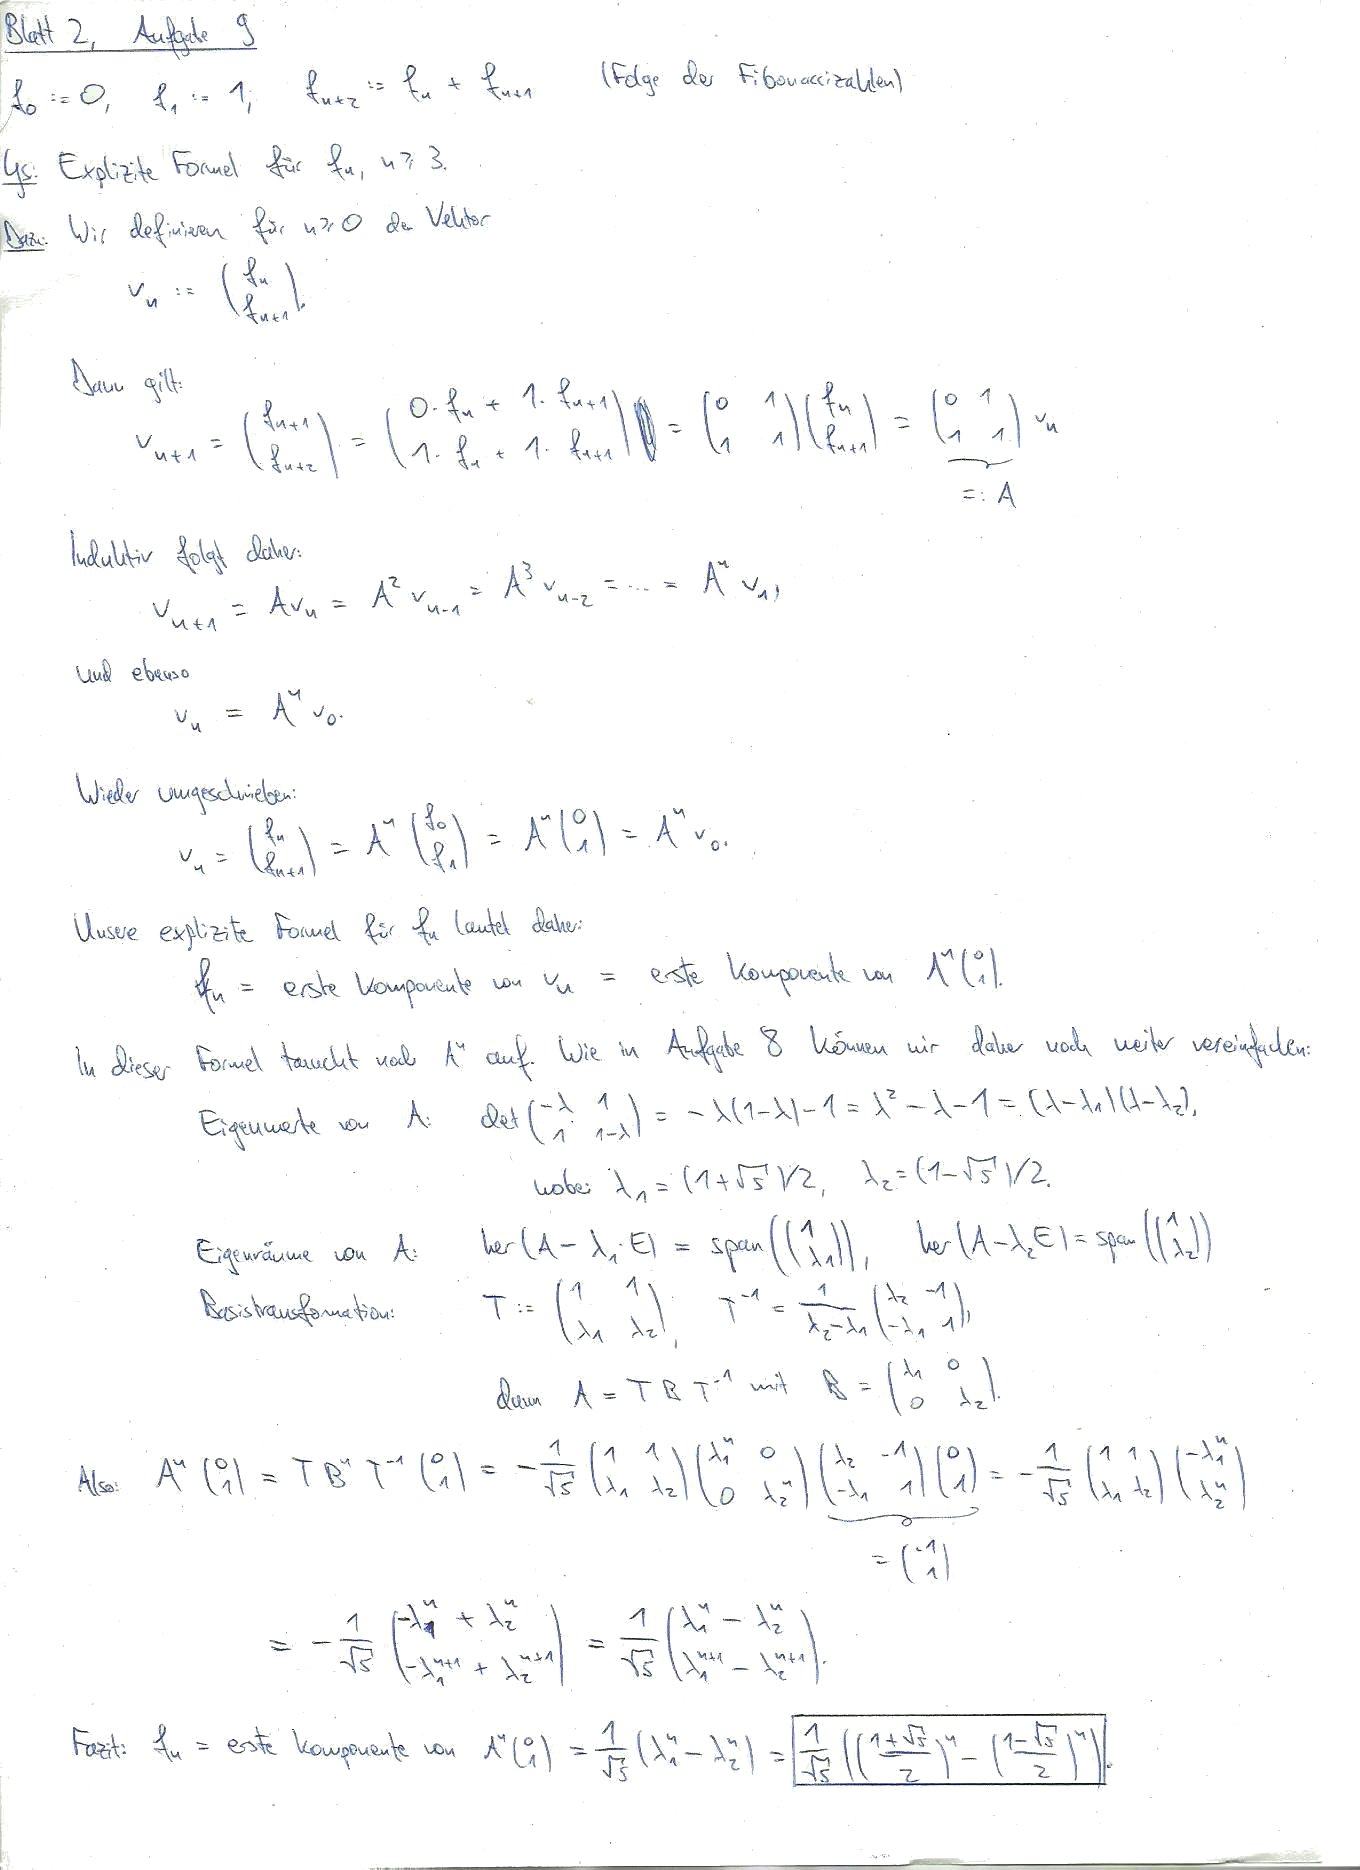 Blatt 2, Aufgabe 9
f₀ := 0, f₁ := 1, fₙ₊₂ := fₙ + fₙ₊₁ (Folge der Fibonaccizahlen)
Gs: Explizite Formel für fₙ, n ≥ 3.
Dazu: Wir definieren für n ≥ 0 den Vektor
vₙ := (fₙ; fₙ₊₁).
Dann gilt:
vₙ₊₁ = (fₙ₊₁; fₙ₊₂) = (0·fₙ + 1·fₙ₊₁; 1·fₙ + 1·fₙ₊₁) = (0 1; 1 1)(fₙ; fₙ₊₁) = (0 1; 1 1) vₙ
=: A
Induktiv folgt daher:
vₙ₊₁ = Avₙ = A² vₙ₋₁ = A³ vₙ₋₂ = ... = Aⁿ v₁,
und ebenso
vₙ = Aⁿ v₀.
Wieder umgeschrieben:
vₙ = (fₙ; fₙ₊₁) = Aⁿ (f₀; f₁) = Aⁿ (0; 1) = Aⁿ v₀.
Unsere explizite Formel für fₙ lautet daher:
fₙ = erste Komponente von vₙ = erste Komponente von Aⁿ (0; 1).
In dieser Formel taucht noch Aⁿ auf. Wie in Aufgabe 8 können wir daher noch weiter vereinfachen:
Eigenwerte von A: det(-λ 1; 1 1-λ) = -λ(1-λ)-1 = λ²-λ-1 = (λ-λ₁)(λ-λ₂),
wobei λ₁ = (1+√5)/2, λ₂ = (1-√5)/2.
Eigenräume von A: ker(A-λ₁·E) = span((1; λ₁)), ker(A-λ₂E) = span((1; λ₂))
Basistransformation: T := (1 1; λ₁ λ₂), T⁻¹ = 1/(λ₂-λ₁) (λ₂ -1; -λ₁ 1),
dann A = T B T⁻¹ mit B = (λ₁ 0; 0 λ₂).
Also: Aⁿ (0; 1) = T Bⁿ T⁻¹ (0; 1) = -1/√5 (1 1; λ₁ λ₂)(λ₁ⁿ 0; 0 λ₂ⁿ)(λ₂ -1; -λ₁ 1)(0; 1) = -1/√5 (1 1; λ₁ λ₂)(-λ₁ⁿ; λ₂ⁿ)
= (-1; 1)
= -1/√5 (-λ₁ⁿ + λ₂ⁿ; -λ₁ⁿ⁺¹ + λ₂ⁿ⁺¹) = 1/√5 (λ₁ⁿ - λ₂ⁿ; λ₁ⁿ⁺¹ - λ₂ⁿ⁺¹).
Fazit: fₙ = erste Komponente von Aⁿ (0; 1) = 1/√5 (λ₁ⁿ - λ₂ⁿ) = 1/√5 (((1+√5)/2)ⁿ - ((1-√5)/2)ⁿ).